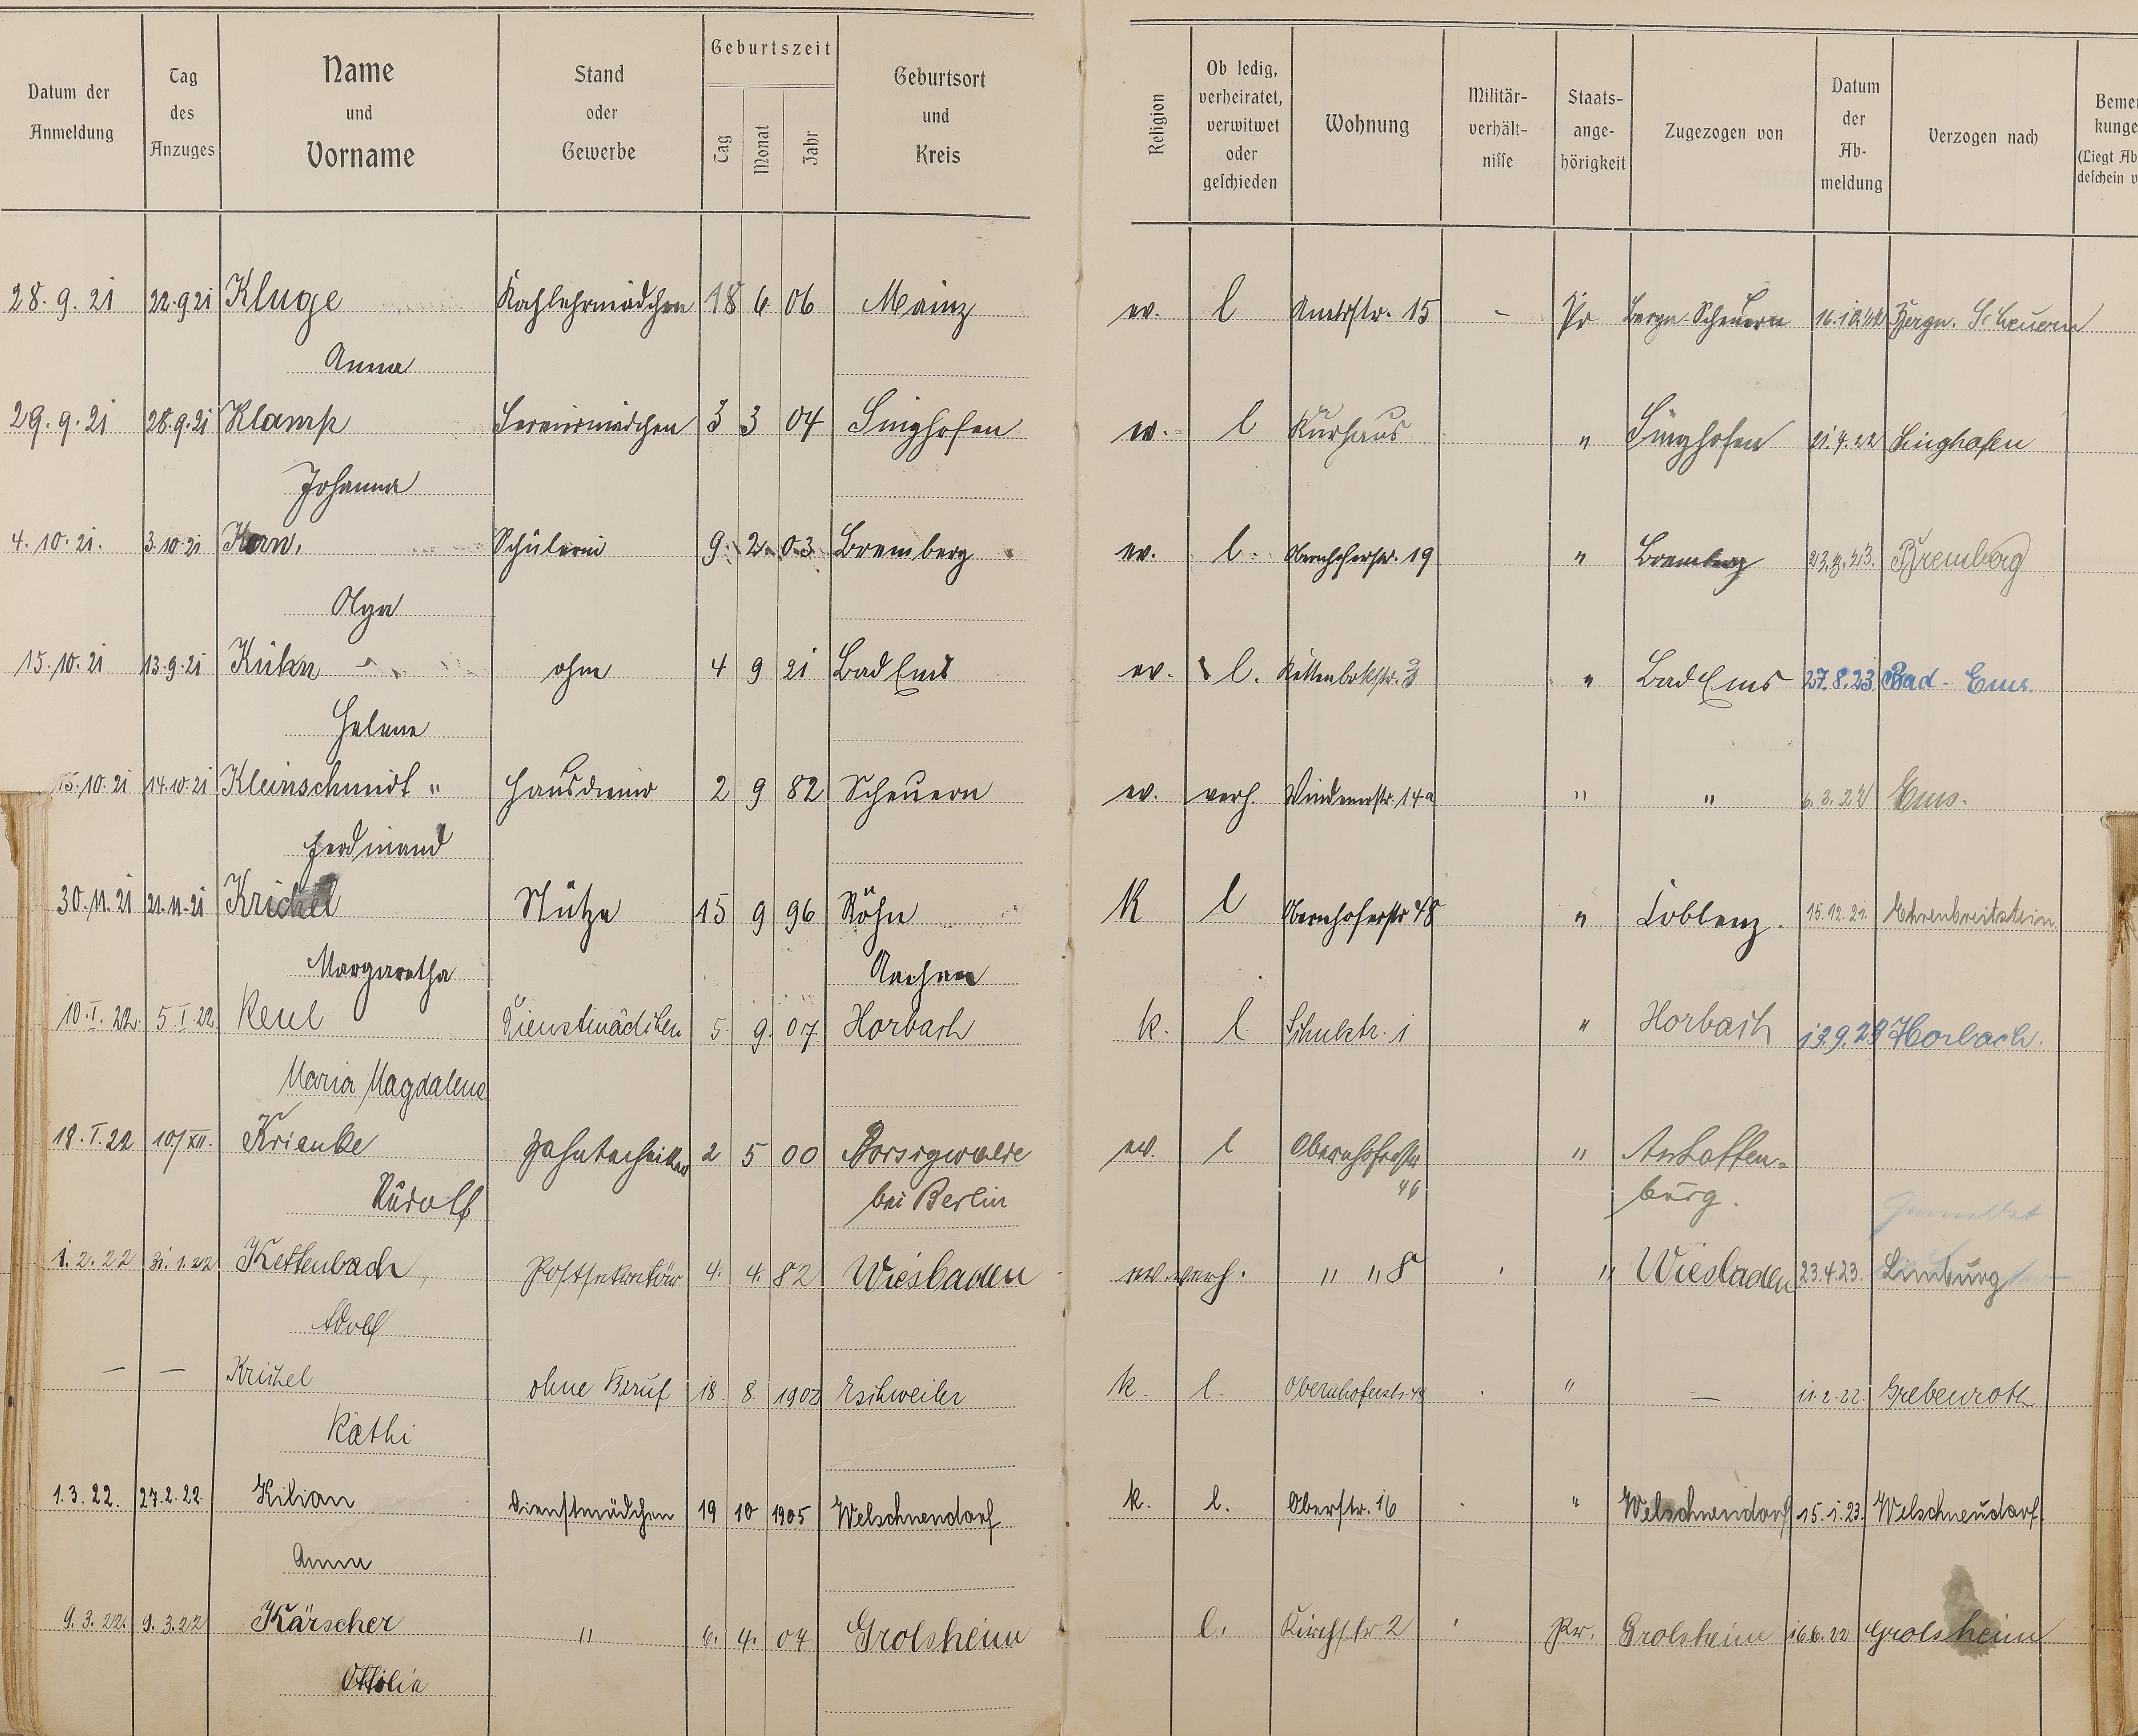 Datum der Anmeldung | Tag des Anzuges | Name und Vorname | Stand oder Gewerbe | Geburtszeit Tag Monat Jahr | Geburtsort und Kreis | Religion | Ob ledig, verheiratet, verwitwet oder geschieden | Wohnung | Militär-verhält-nisse | Staats-ange-hörigkeit | Zugezogen von | Datum der Ab-meldung | Verzogen nach | Beme kunge (Liegt Ab deschein v
28.9.21 22.9.21 Kluge Kochlehrmädchen 18 6 06 Mainz ev. l Amtsstr. 15 - Pr Bergn. Scheuern Bergn. Scheuern
Anna
29.9.21 28.9.21 Klamp Serviermädchen 3 3 04 Singhofen ev. l Kurhaus " Singhofen Singhofen
Johanna
4.10.21. 3.10.21 Korn, Schülerin 9. 2. 03 Bremberg ev. l. Obernhoferstr. 19 " Bremberg Bremberg
Olga
15.10.21 13.9.21 Kühn ohne 4 9 21 Bad Ems ev. l. " Bad Ems 27.8.23 Bad-Ems.
Helene
15.10.21 14.10.21 Kleinschmidt " Hausdiener 2 9 82 Scheuern ev. verh. Windenerstr. 14a " " 6.3.22 Ems.
Ferdinand
30.11.21 21.11.21 Krichel Stütze 15 9 96 Röhn K l Obernhoferstr 48 " Coblenz. 15.12.21. Ehrenbreitstein
Margaretha Aachen
10.I.22. 5.I.22 Keul Dienstmädchen 5. 9. 07 Horbach k. l Schulstr. 1 " Horbach Horbach.
Maria Magdalena
18.I.22 10/XII. Krienke Zahntechniker 2 5 00 Borsigwalde ev. l Obernhoferstr " Aschaffen=
Rudolf bei Berlin 46 burg.
1.2.22 31.1.22 Kettenbach, Postsekretär 4. 4. 82 Wiesbaden ev. verh. " " 8 " Wiesbaden 23.4.23. Limburg
Adolf
— — Krichel ohne Beruf 18. 8. Eschweiler k. l. Obernhoferstr. 48 " — 11.2.22. Grebenroth
Käthi
1.3.22. 27.2.22. Kilian Dienstmädchen 19 10 1905 Welschneudorf k. l. Oberstr. 16 " Welschneudorf 15.1.23. Welschneudorf.
Anna
9.3.22. 9.3.22 Kärscher " 6. 4. 04 Grolsheim l. Kirchstr 2 Pr. Grolsheim 16.6.22 Grolsheim
Ottilie